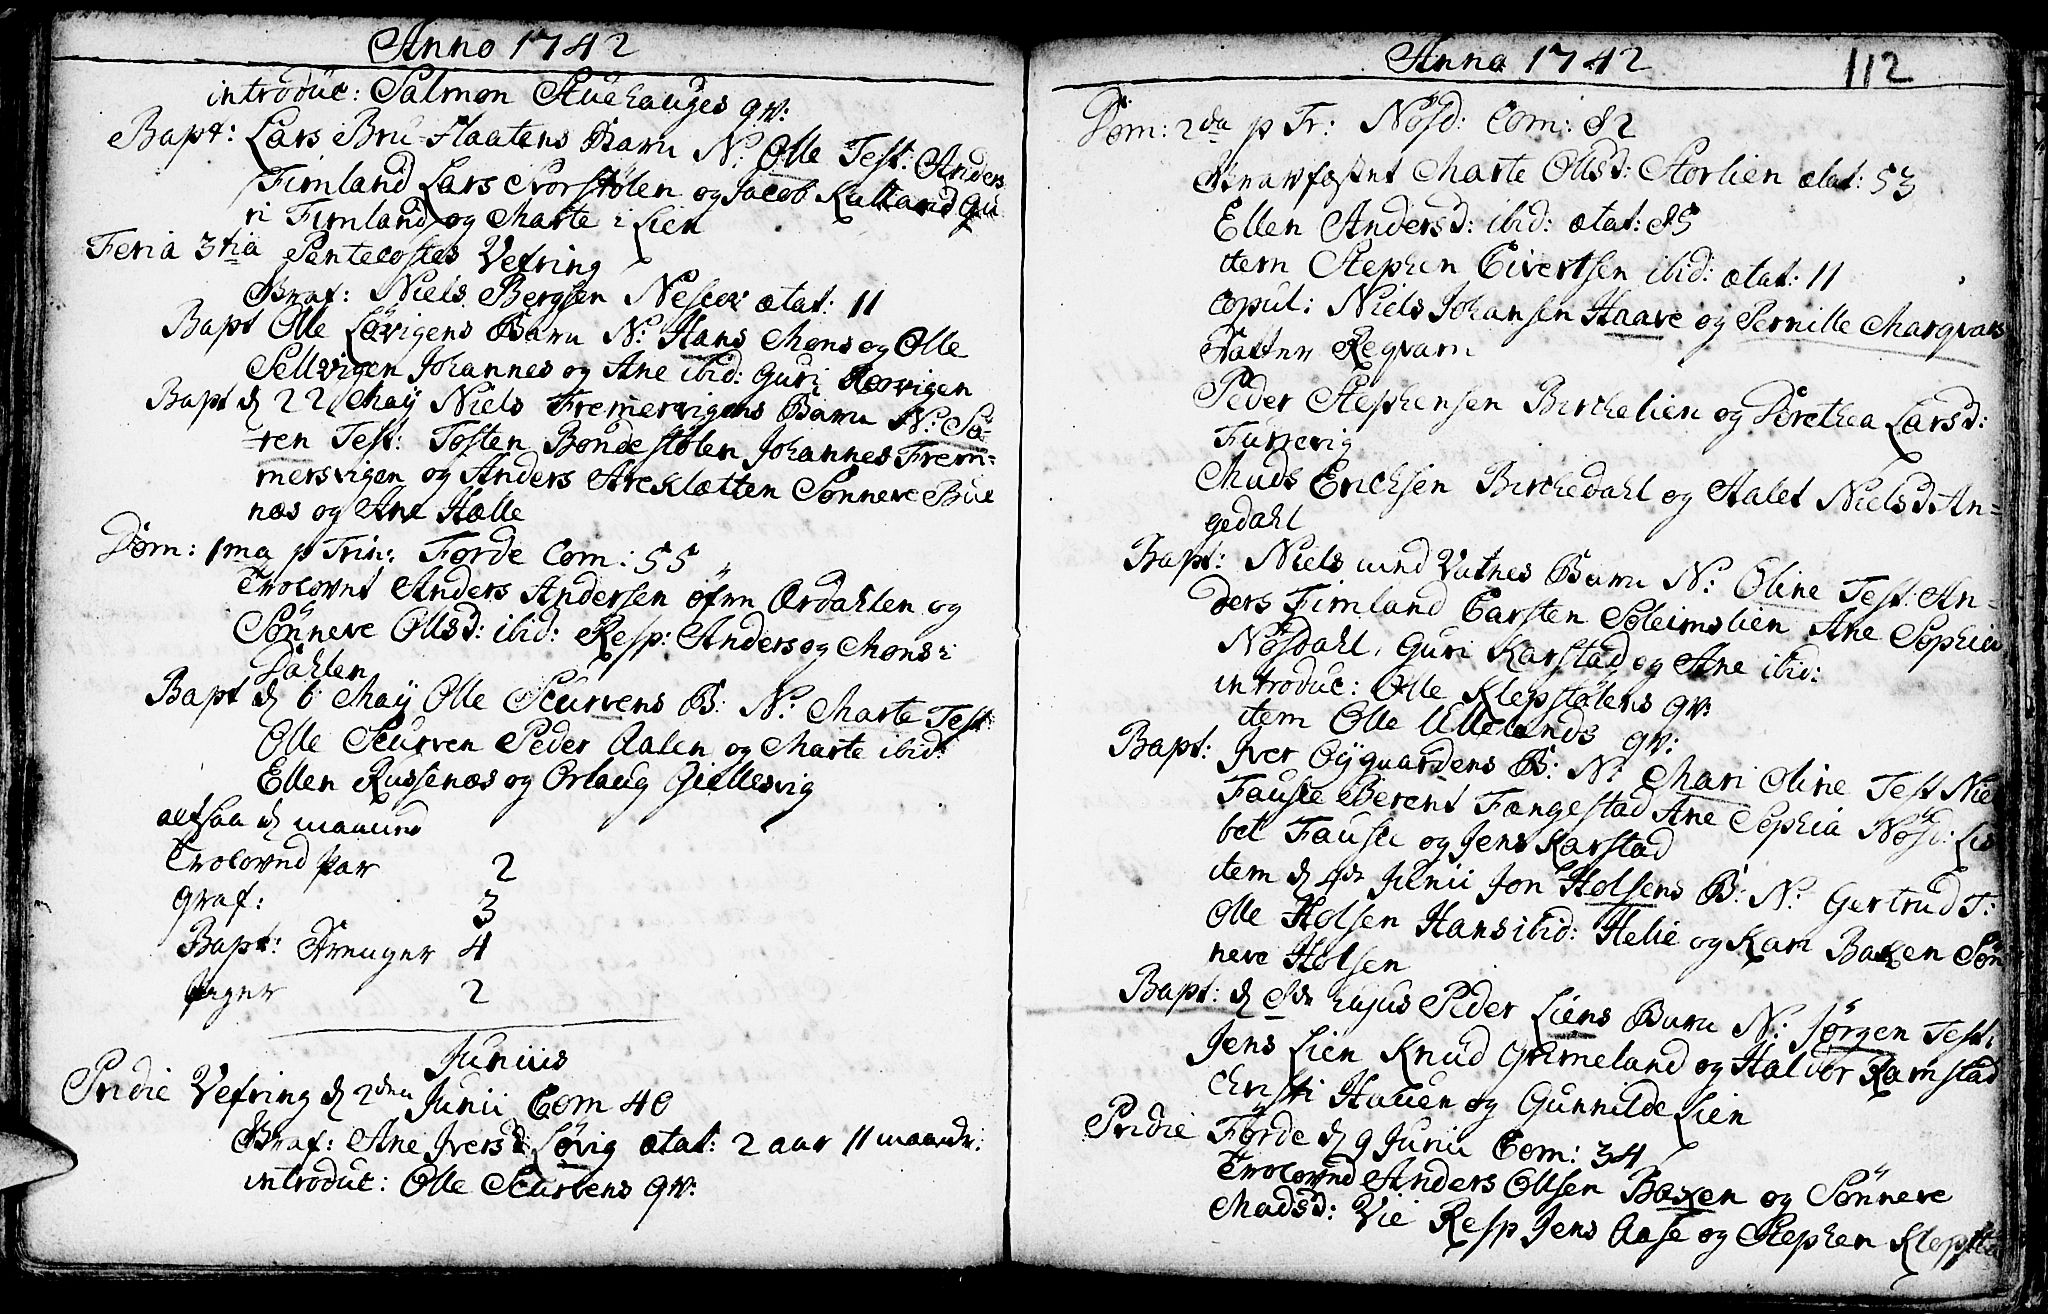 Anno 1742
introduc: Salmon Stuehauges qv:
Bapt: Lars Bru-flaatens Barn N: Olle Test: Anders
Fimland Lars Storstølen og Jacob Kulland Gu
ri Fimland og Marte i Lien
Feria 3tia Pentecostes Vefring
Graf: Niels Bergsen Nescor ætat: 11
Bapt Olle Løvigens Barn N: Hans Mons og Olle
Sellvigen Johannes og Ane ibid: Guri
Bapt d 22 Maij Niels Fremersvigens Barn N: Sø-
ren Test: Tosten Bondestølen Johannes Frem=
mersvigen og Anders Areklætten Sønneve Bue
næs og Ane Halle
Dom: 1ma p Trin: Førde Com: 55
Trolovet Anders Andersen øfre Ærdahlen og
Sønneve Ollsd: ibid: Resp: Anders og Mons i
Dahlen
Bapt d 6 Maij Olle Scurvens B: N: Marte Test:
Olle Scurven Peder Aalen og Marte ibid:
Ellen Russenæs og Orlaug Giellesvig
altsaa d maaned
Troloved par 2
graf: 3
Bapt: Drenger 4
piger 2
Junius
Pridie Vefring d 2den Junii Com 40
Graf: Ane Iversd: Løvig ætat: 2 aar 11 maander:
introduc: Olle Scurvens qv:
Anno 1742 112
Dom: 2da p Tr: Nøsd: Com: 82
Marte Ollsd: Storlien ætat: 53
Ellen Andersd: ibid: ætat: 85
item Stephen Eivertsen ibid: ætat: 11
copul: Niels Johansen Haave og Pernille Marqvars
Datter Reqvam
Peder Stephensen Birchelien og Dorethea Larsd:
Furrevig
Mads Erichsen Birchedahl og Aalet Nielsd: An=
gedahl
Bapt: Niels Vatnes Barn N: Oline Test: An=
ders Fimland Carsten Soleimslien Ane Sophia
Nøsdahl, Guri Karstad og Ane ibid:
introduc: Olle Klepstølens qv:
item Olle Ullelands qv:
Bapt: Iver Øÿgaardens B: N: Mari Oline Test Nie
Fauske Berent Fængestad Ane Sophia Nøsd: Lis
bet Fauske og Jens Karstad
item d 4de Junii Jon Holsens B: N: Gertrud T:
Olle Holsen Hans ibid: Helie og Kari Baxen Søn
neve Holsen
Bapt: d 8de hujus Peder Liens Barn N: Jørgen Test:
Jens Lien Knud Grimeland og Haldor Ramstad
Christi Hauen og Gunnilde Lien
Pridie Førde d 9 Junii Com: 34
Troloved Anders Ollsen Baxen og Sønneve
Madsd: Vie Resp Jens Aase og Stephen Klepstø